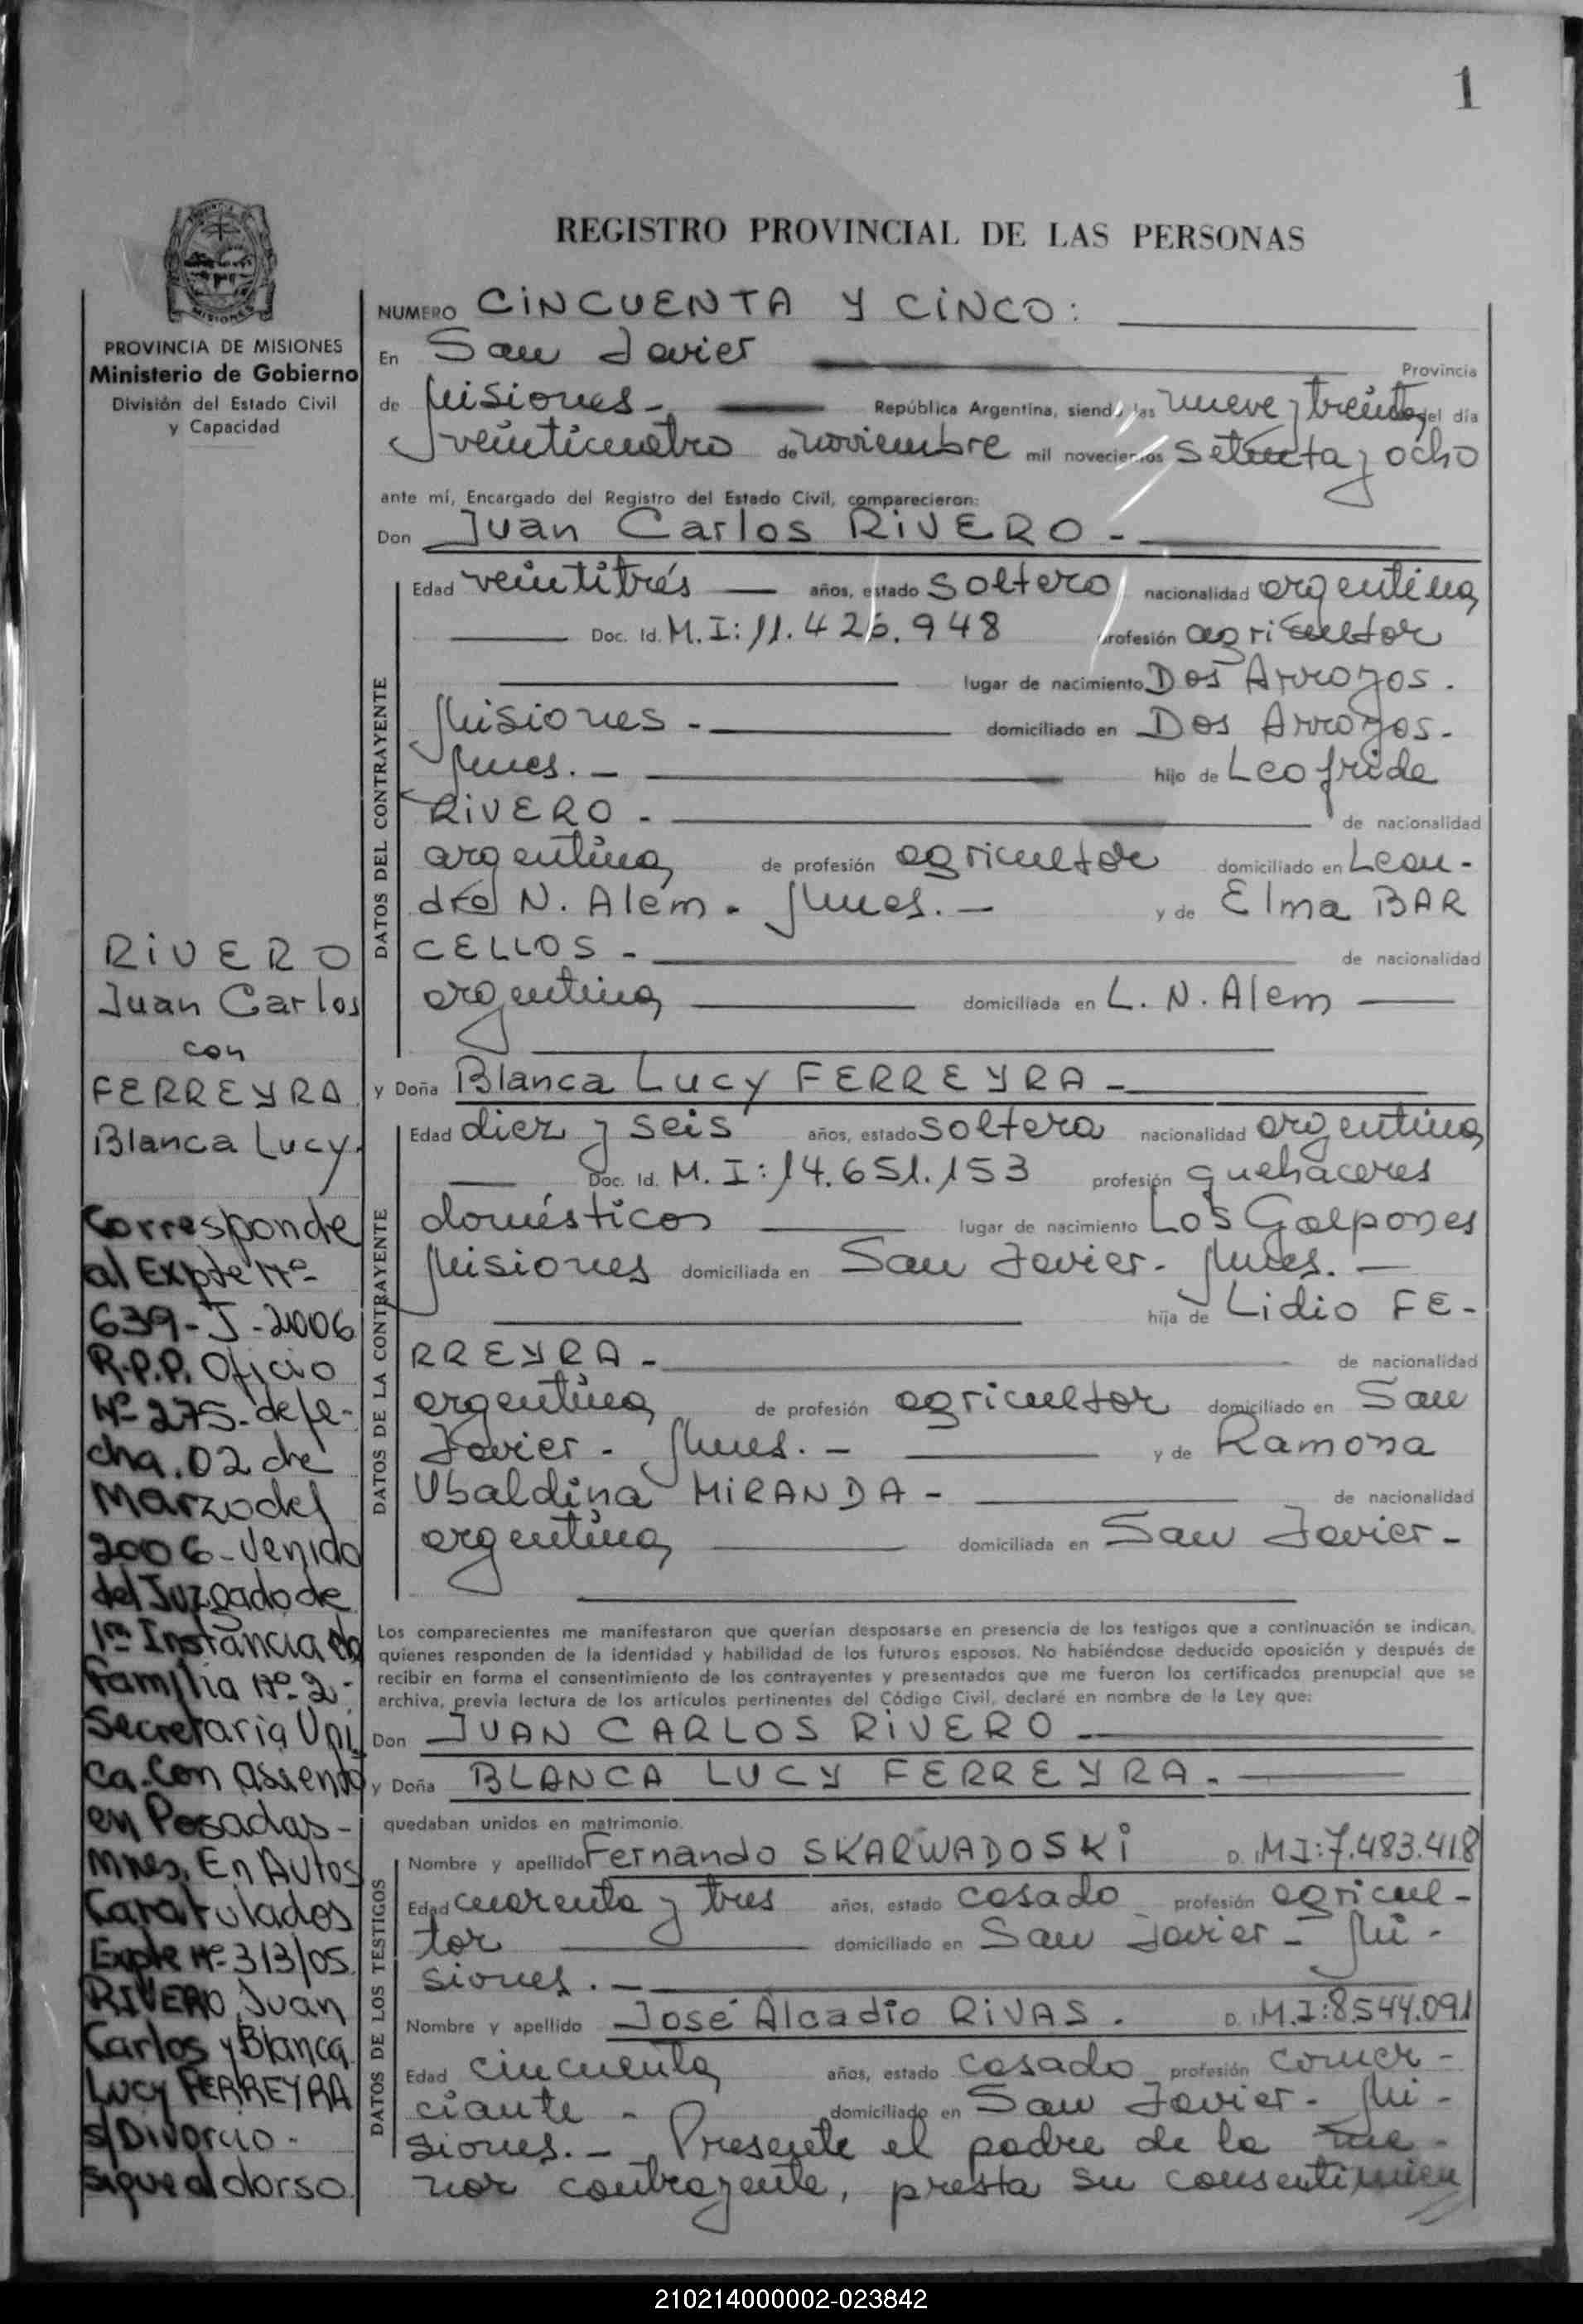 1
REGISTRO PROVINCIAL DE LAS PERSONAS
PROVINCIA DE MISIONES
Ministerio de Gobierno
División del Estado Civil
y Capacidad
NUMERO CINCUENTA Y CINCO:
En San Javier Provincia
de Misiones - República Argentina, siendo las nueve y treinta del día
veinticuatro de noviembre mil novecientos setenta y ocho
ante mí, Encargado del Registro del Estado Civil, comparecieron:
Don Juan Carlos RIVERO -
DATOS DEL CONTRAYENTE
Edad veintitrés años, estado soltero nacionalidad argentina
Doc. Id. M.I: 11.426.948 profesión agricultor
lugar de nacimiento Dos Arroyos.
Misiones - domiciliado en Dos Arroyos -
Mnes. - hijo de Leofride
RIVERO - de nacionalidad
argentina de profesión agricultor domiciliado en Lean-
dro N. Alem - Mnes. - y de Elma BAR
CELLOS - de nacionalidad
argentina domiciliada en L. N. Alem
y Doña Blanca Lucy FERREYRA -
DATOS DE LA CONTRAYENTE
Edad diez y seis años, estado soltera nacionalidad argentina
Doc. Id. M.I: 14.651.153 profesión quehaceres
domésticos lugar de nacimiento Los Galpones
Misiones domiciliada en San Javier - Mnes. -
hija de Lidio FE-
RREYRA - de nacionalidad
argentina de profesión agricultor domiciliado en San
Javier - Mnes. - y de Ramona
Ubaldina MIRANDA - de nacionalidad
argentina domiciliada en San Javier -
Los comparecientes me manifestaron que querían desposarse en presencia de los testigos que a continuación se indican,
quienes responden de la identidad y habilidad de los futuros esposos. No habiéndose deducido oposición y después de
recibir en forma el consentimiento de los contrayentes y presentados que me fueron los certificados prenupcial que se
archiva, previa lectura de los artículos pertinentes del Código Civil, declaré en nombre de la Ley que:
Don JUAN CARLOS RIVERO
y Doña BLANCA LUCY FERREYRA -
quedaban unidos en matrimonio.
DATOS DE LOS TESTIGOS
Nombre y apellido Fernando SKARWADOSKI D. I. M.I: 7.483.418
Edad cuarenta y tres años, estado casado profesión agricul-
tor domiciliado en San Javier - Mi-
siones. -
Nombre y apellido José Alcadio RIVAS. D. I. M.I: 8.544.091
Edad cincuenta años, estado casado profesión comer-
ciante - domiciliado en San Javier - Mi-
siones. - Presente el padre de la me-
nor contrayente, presta su consentimien
RIVERO
Juan Carlos
con
FERREYRA
Blanca Lucy.
Corresponde
al Expte Nº
639-J-2006
R.P.P. Oficio
Nº 275- de fe-
cha. 02 de
Marzo del
2006- Venido
del Juzgado de
1ra Instancia de
Familia Nº 2-
Secretaria Uni
ca. Con asiento
en Posadas-
Mnes. En Autos
Caratulados
Expte Nº 313/05
RIVERO, Juan
Carlos y Blanca
Lucy FERREYRA
s/ Divorcio -
sigue al dorso
210214000002-023842